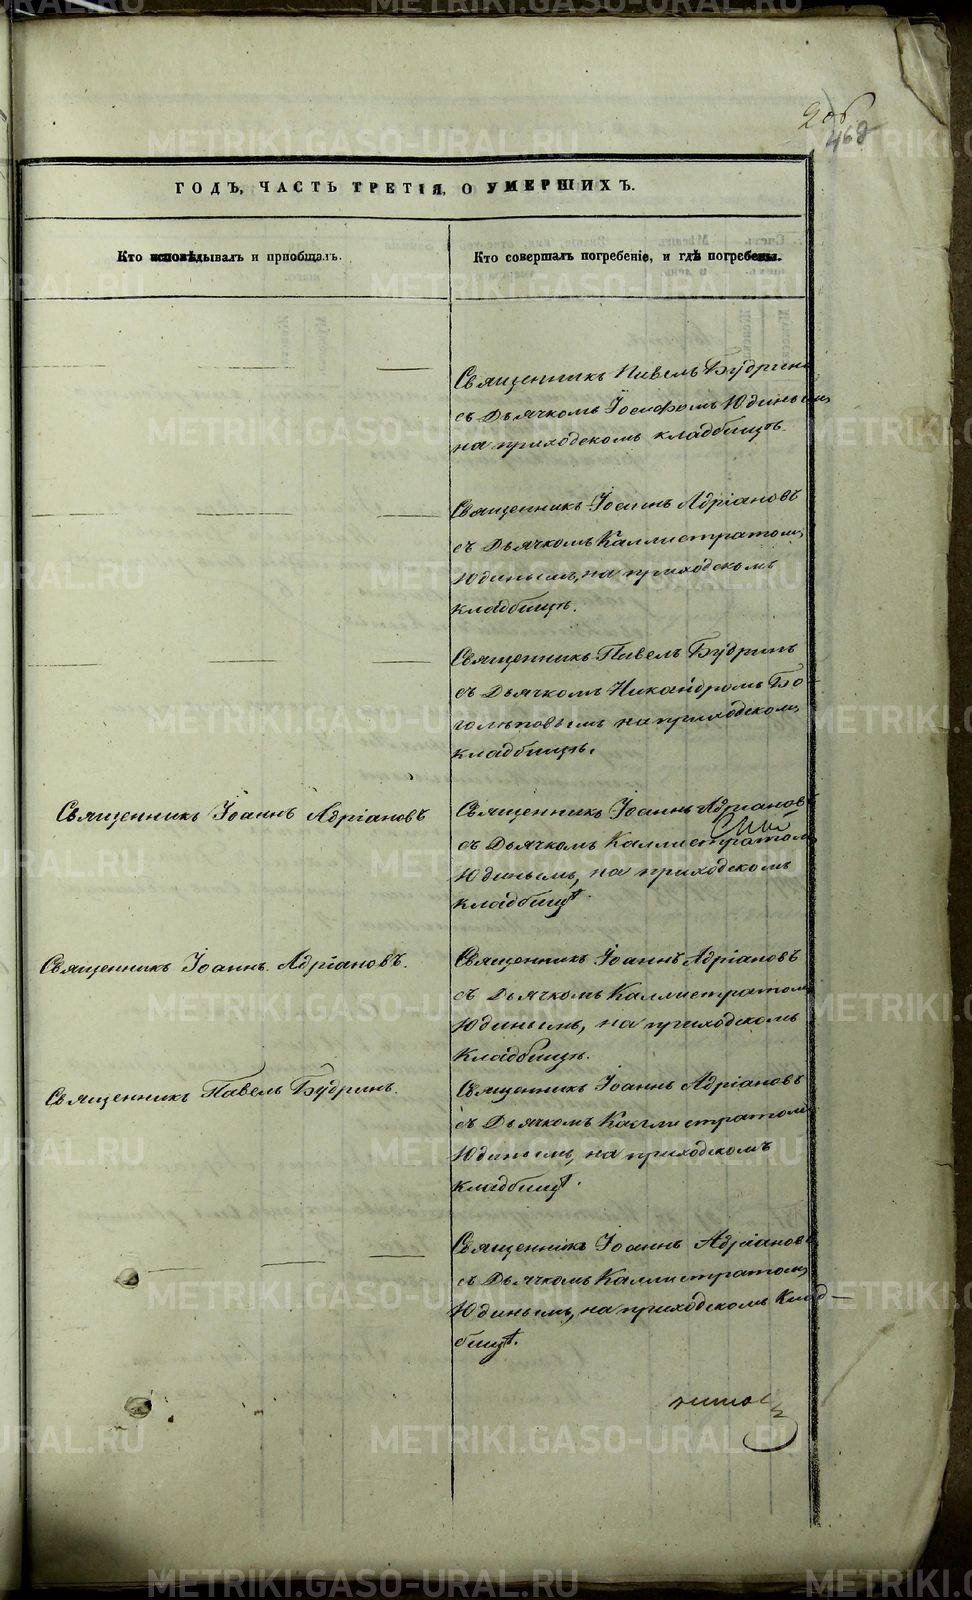 206
468
ГОДЪ, ЧАСТЬ ТРЕТІЯ, О УМЕРШИХЪ.
Кто исповѣдывалъ и пріобщалъ.
Кто совершалъ погребеніе, и гдѣ погребены.
Священникъ Павелъ Будринъ
съ Дьячкомъ Іосифомъ Юдинымъ,
на приходскомъ кладбищѣ.
Священникъ Іоаннъ Адріановъ
съ Дьячкомъ Каллистратомъ
Юдинымъ, на приходскомъ
кладбищѣ.
Священникъ Павелъ Будринъ
съ Дьячкомъ Никандромъ Бо-
голѣповымъ на приходскомъ
кладбищѣ.
Священникъ Іоаннъ Адріановъ
Священникъ Іоаннъ Адріановъ
съ Дьячкомъ Каллистратомъ
Юдинымъ, на приходскомъ
кладбищѣ.
Священникъ Іоаннъ Адріановъ.
Священникъ Іоаннъ Адріановъ
съ Дьячкомъ Каллистратомъ
Юдинымъ, на приходскомъ
кладбищѣ.
Священникъ Павелъ Будринъ.
Священникъ Іоаннъ Адріановъ
съ Дьячкомъ Каллистратомъ
Юдинымъ, на приходскомъ
кладбищѣ.
Священникъ Іоаннъ Адріановъ
съ Дьячкомъ Каллистратомъ
Юдинымъ, на приходскомъ клад-
бищѣ.
METRIKI.GASO-URAL.RU